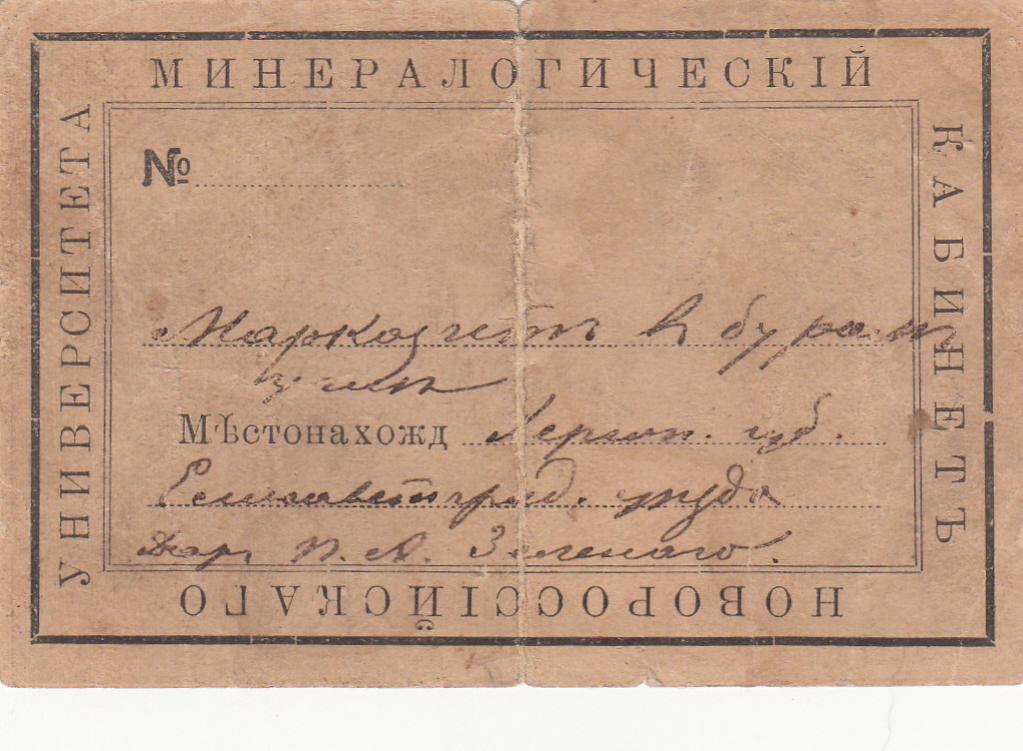 МИНЕРАЛОГИЧЕСКІЙ
КАБИНЕТЪ
НОВОРОССІЙСКАГО
УНИВЕРСИТЕТА
№
Марказитъ въ буромъ
углѣ
Мѣстонахожд Херсон. губ.
Елисаветград. уѣзда
Даръ П. А. Зеленаго.